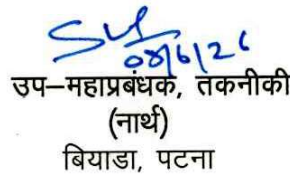 08/6/26
उप–महाप्रबंधक, तकनीकी
(नार्थ)
बियाडा, पटना